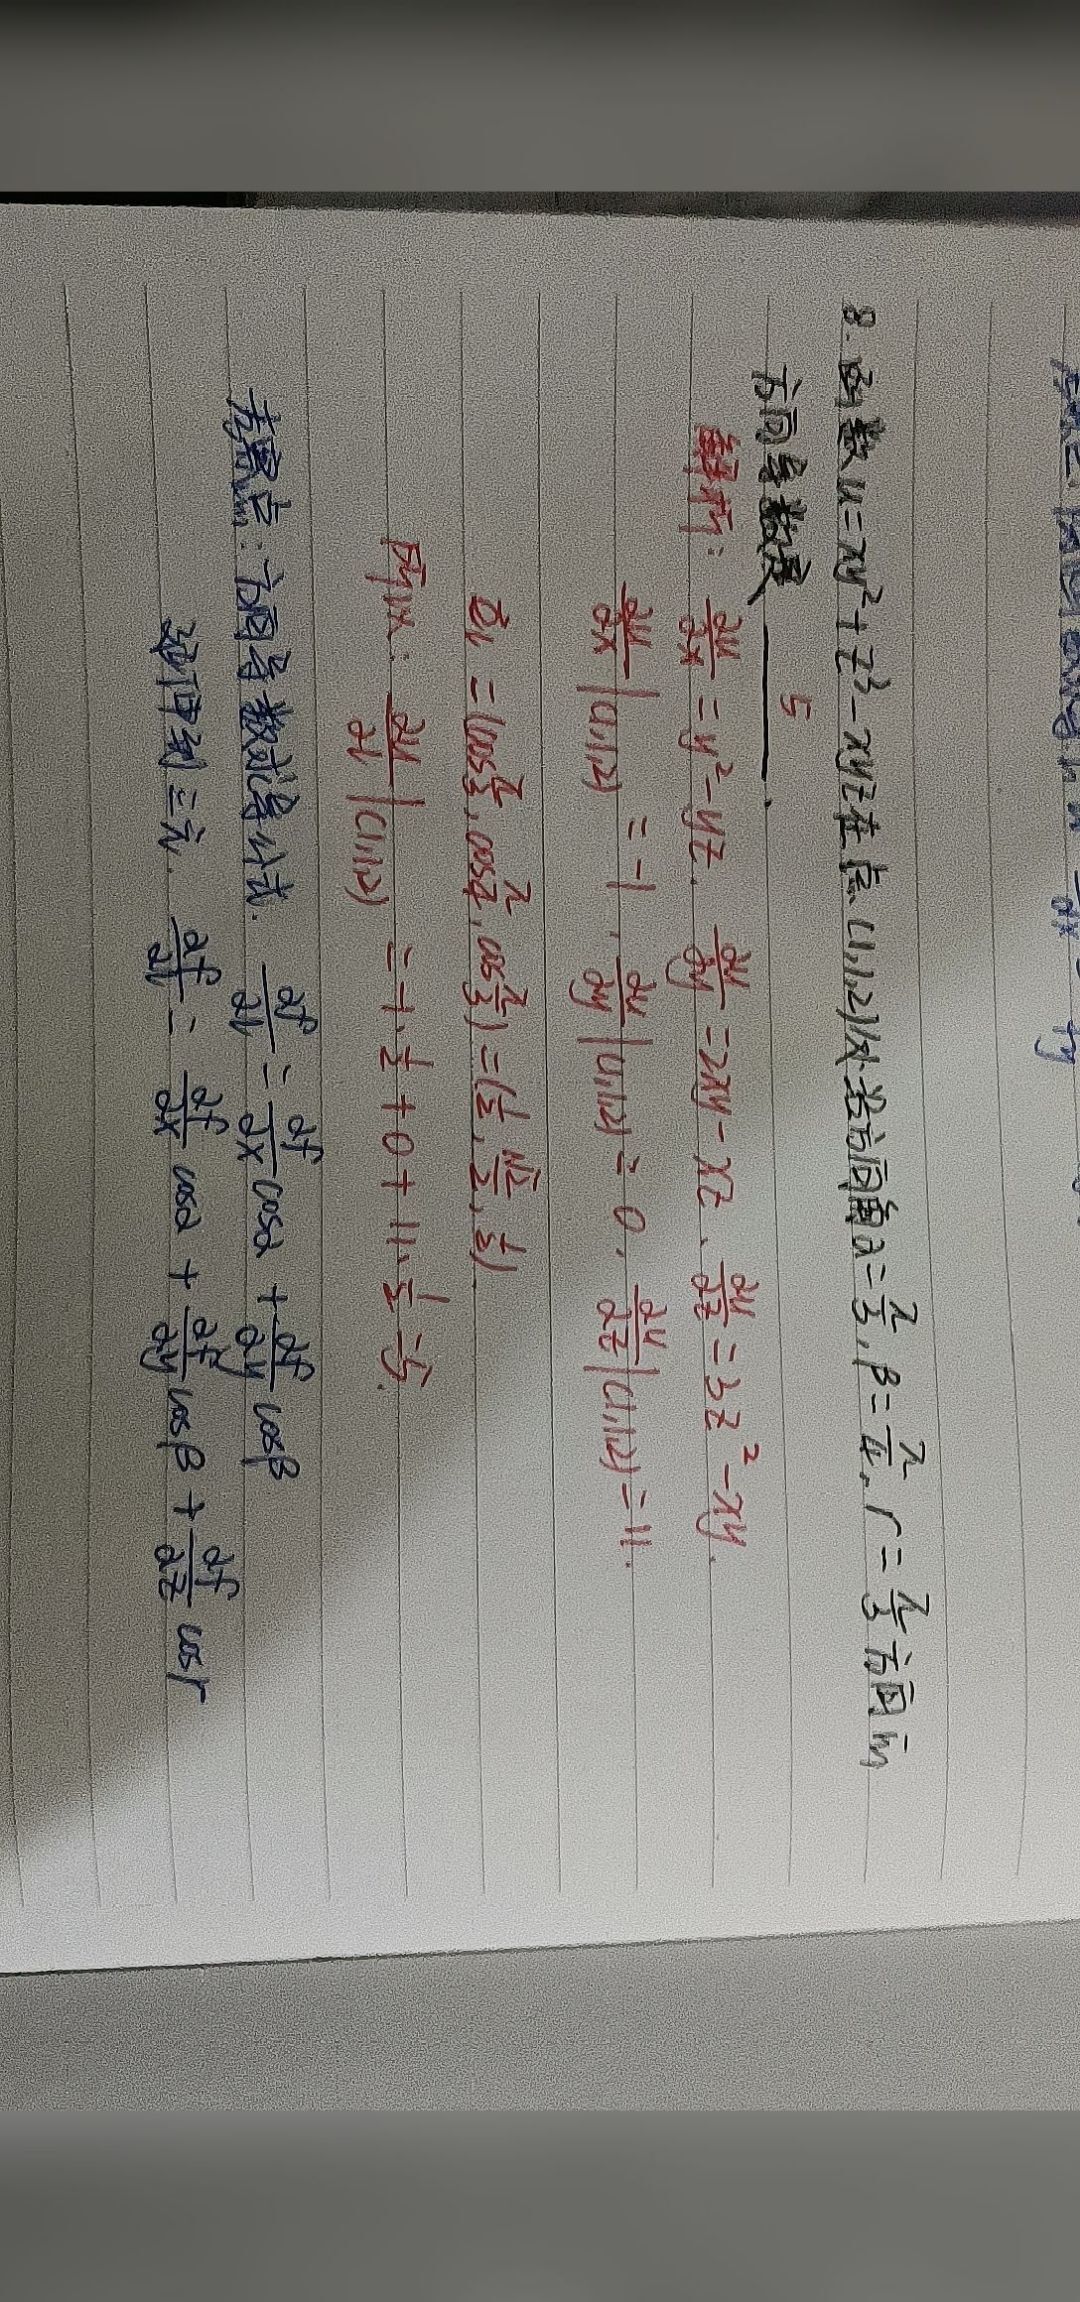 8. 函数 u=xy²+z³-xyz在点(1,1,2)处沿方向角α=π/3, β=π/4, r=π/3方向的
方向导数是 5 .
解析: ∂u/∂x = y²-yz. ∂u/∂y =2xy-xz、∂u/∂z =3z²-xy.
∂u/∂x|(1,1,2) = -1, ∂u/∂y|(1,1,2) = 0. ∂u/∂z|(1,1,2) = 11.
e⃗l =(cosπ/3, cosπ/4, cosπ/3)=(1/2, √2/2, 1/2).
所以: ∂u/∂l|(1,1,2) = -1·1/2 + 0 + 11·1/2 =5.
考察点:方向导数求导公式. ∂f/∂l = ∂f/∂x cosα + ∂f/∂y cosβ
延伸到三元. ∂f/∂l = ∂f/∂x cosα + ∂f/∂y cosβ + ∂f/∂z cosr